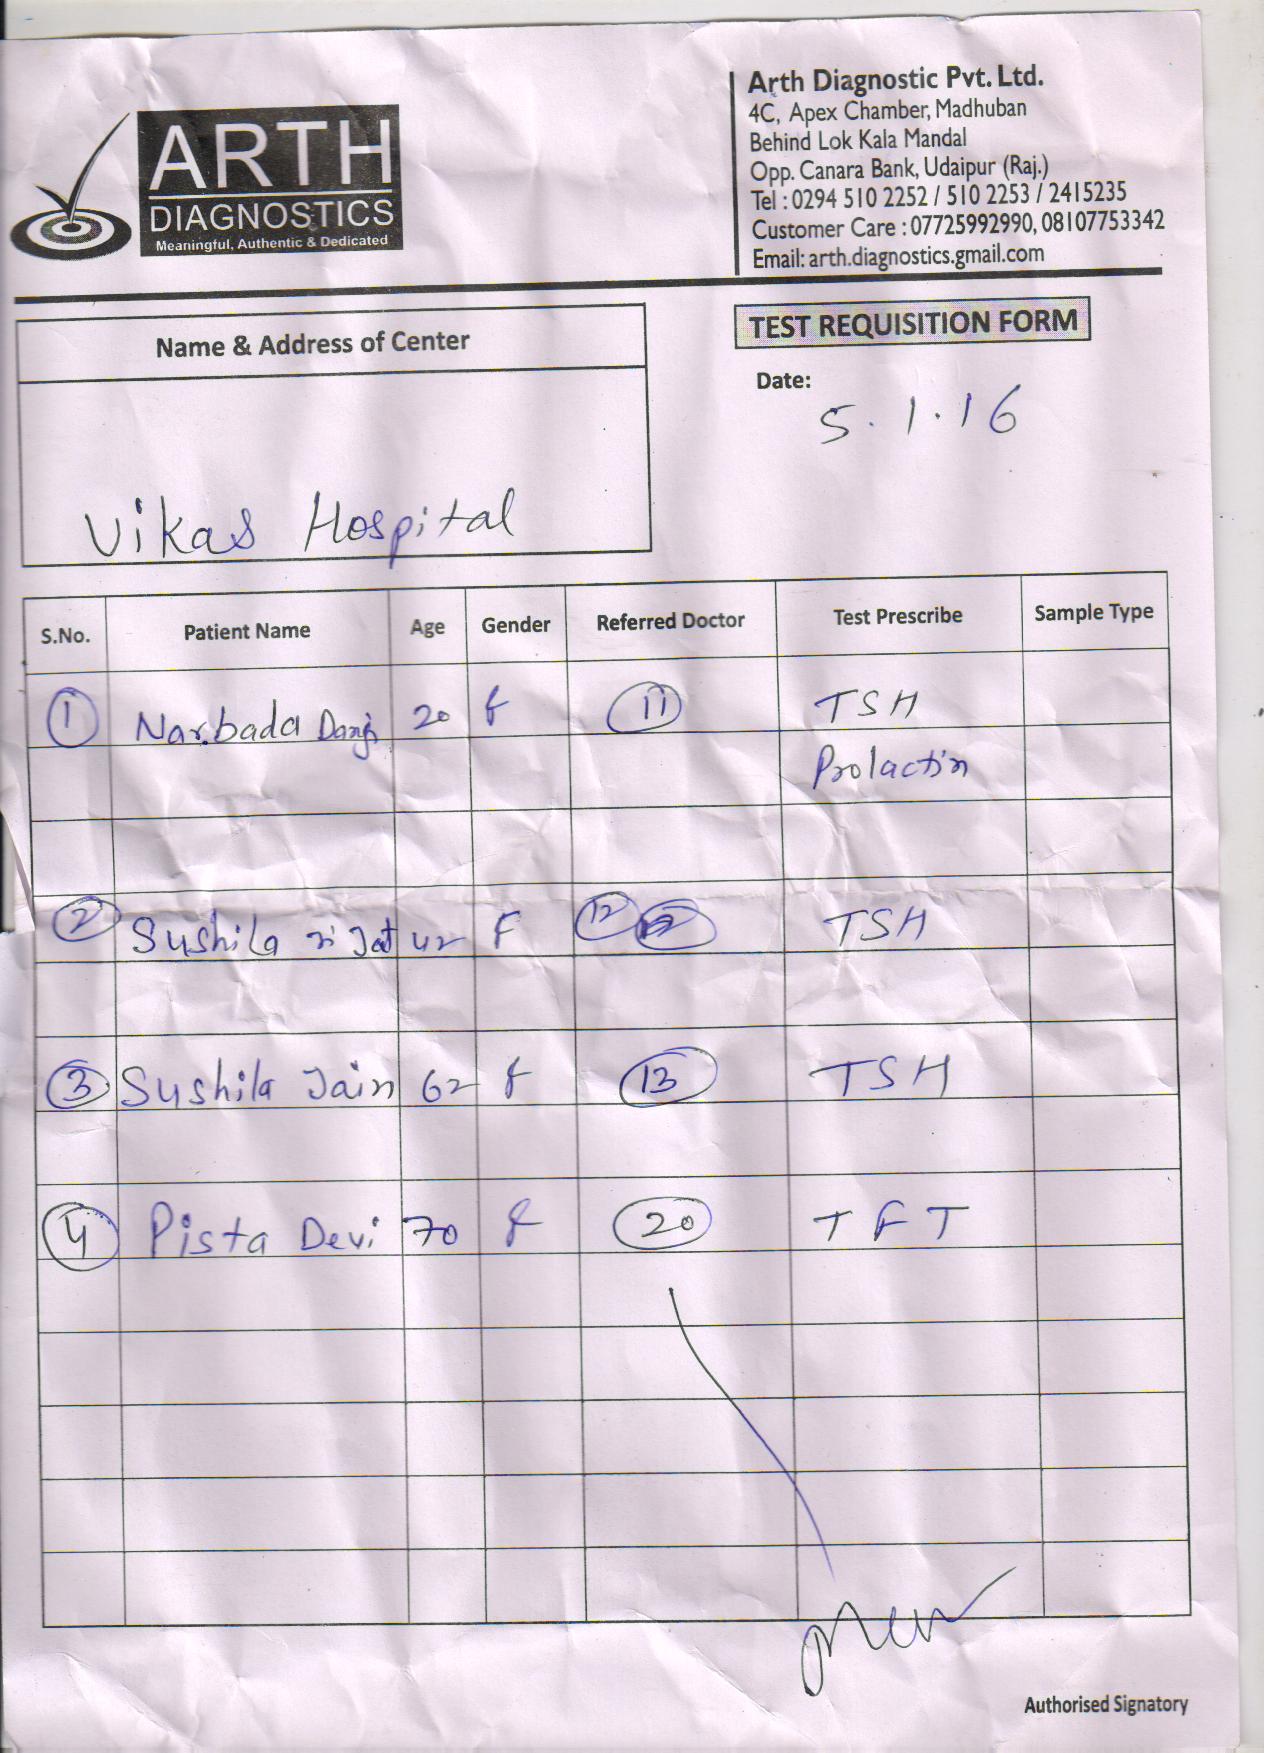 ARTH
DIAGNOSTICS
Meaningful, Authentic & Dedicated
Arth Diagnostic Pvt. Ltd.
4C, Apex Chamber, Madhuban
Behind Lok Kala Mandal
Opp. Canara Bank, Udaipur (Raj.)
Tel : 0294 510 2252 / 510 2253 / 2415235
Customer Care : 07725992990, 08107753342
Email: arth.diagnostics.gmail.com
Name & Address of Center
TEST REQUISITION FORM
Date:
5.1.16
Vikas Hospital
S.No. Patient Name Age Gender Referred Doctor Test Prescribe Sample Type
1 Narbada Dangi 20 f 11 TSH
Prolactin
2 Sushila 42 F 12 TSH
3 Sushila Jain 62 f 13 TSH
4 Pista Devi 70 f 20 TFT
Authorised Signatory